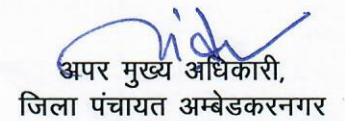 अपर मुख्य अधिकारी,
जिला पंचायत अम्बेडकरनगर